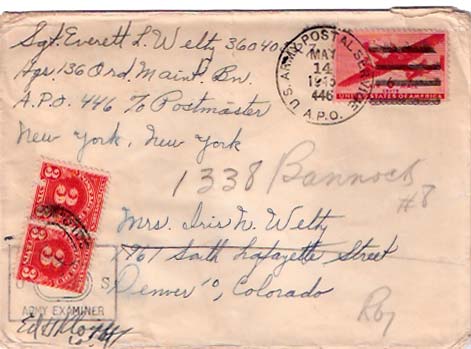 Sgt. Everett L. Welty 360407
Hqs. 136 Ord. Maint. Bn.
A.P.O. 446 % Postmaster
New York, New York
U.S. ARMY POSTAL SERVICE
MAY
14
1945
446
A.P.O.
UNITED STATES OF AMERICA
1338 Bannock
#8
Mrs. Iris N. Welty
South Lafayette Street
Denver 10, Colorado
Roy
3
3
U S
ARMY EXAMINER